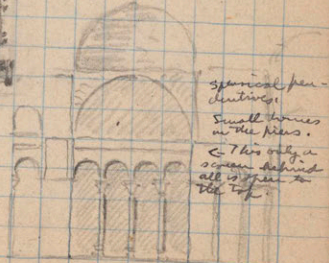 spherical pen-
dentives.
Small domes
in the piers.
← This only a
screen behind
all is open to
the top.